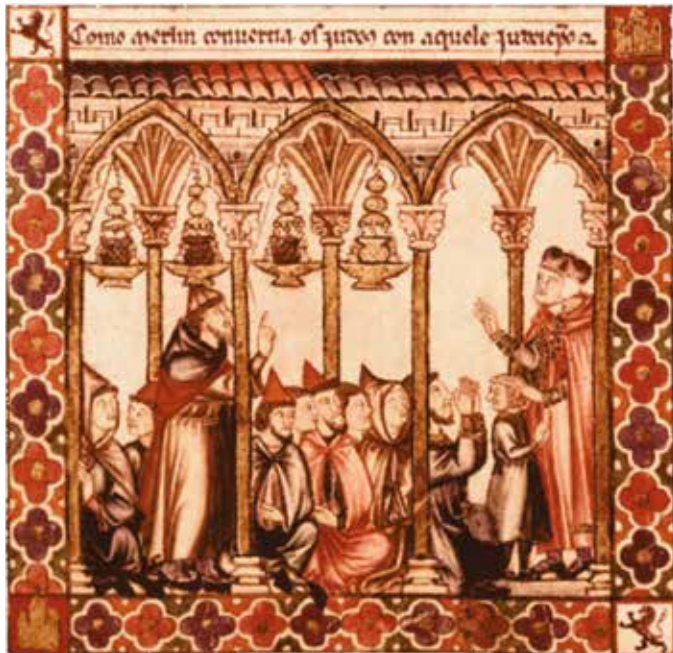 Como merlin conuertia os judeos con aquele